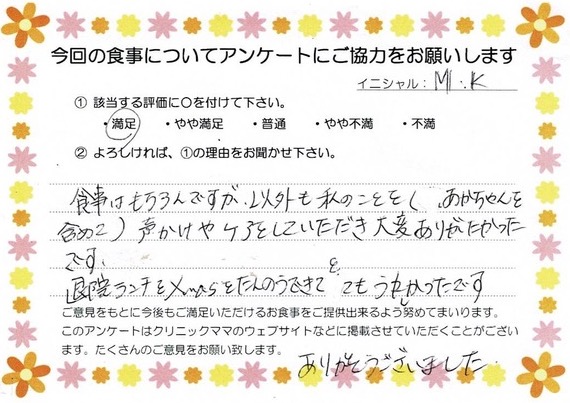 今回の食事についてアンケートにご協力をお願いします
イニシャル：M.K
① 該当する評価に○を付けて下さい。
・満足　・やや満足　・普通　・やや不満　・不満
② よろしければ、①の理由をお聞かせ下さい。
食事はもちろんですが、以外も私のことを（あかちゃんを
含めて）声かけやケアをしていただき大変ありがたかった
です。
退院ランチをXmasをたんのうできて とてもうれしかったです
ご意見をもとに今後もご満足いただけるお食事をご提供出来るよう努めてまいります。
このアンケートはクリニックママのウェブサイトなどに掲載させていただくことがござい
ます。たくさんのご意見をお願い致します。
ありがとうございました